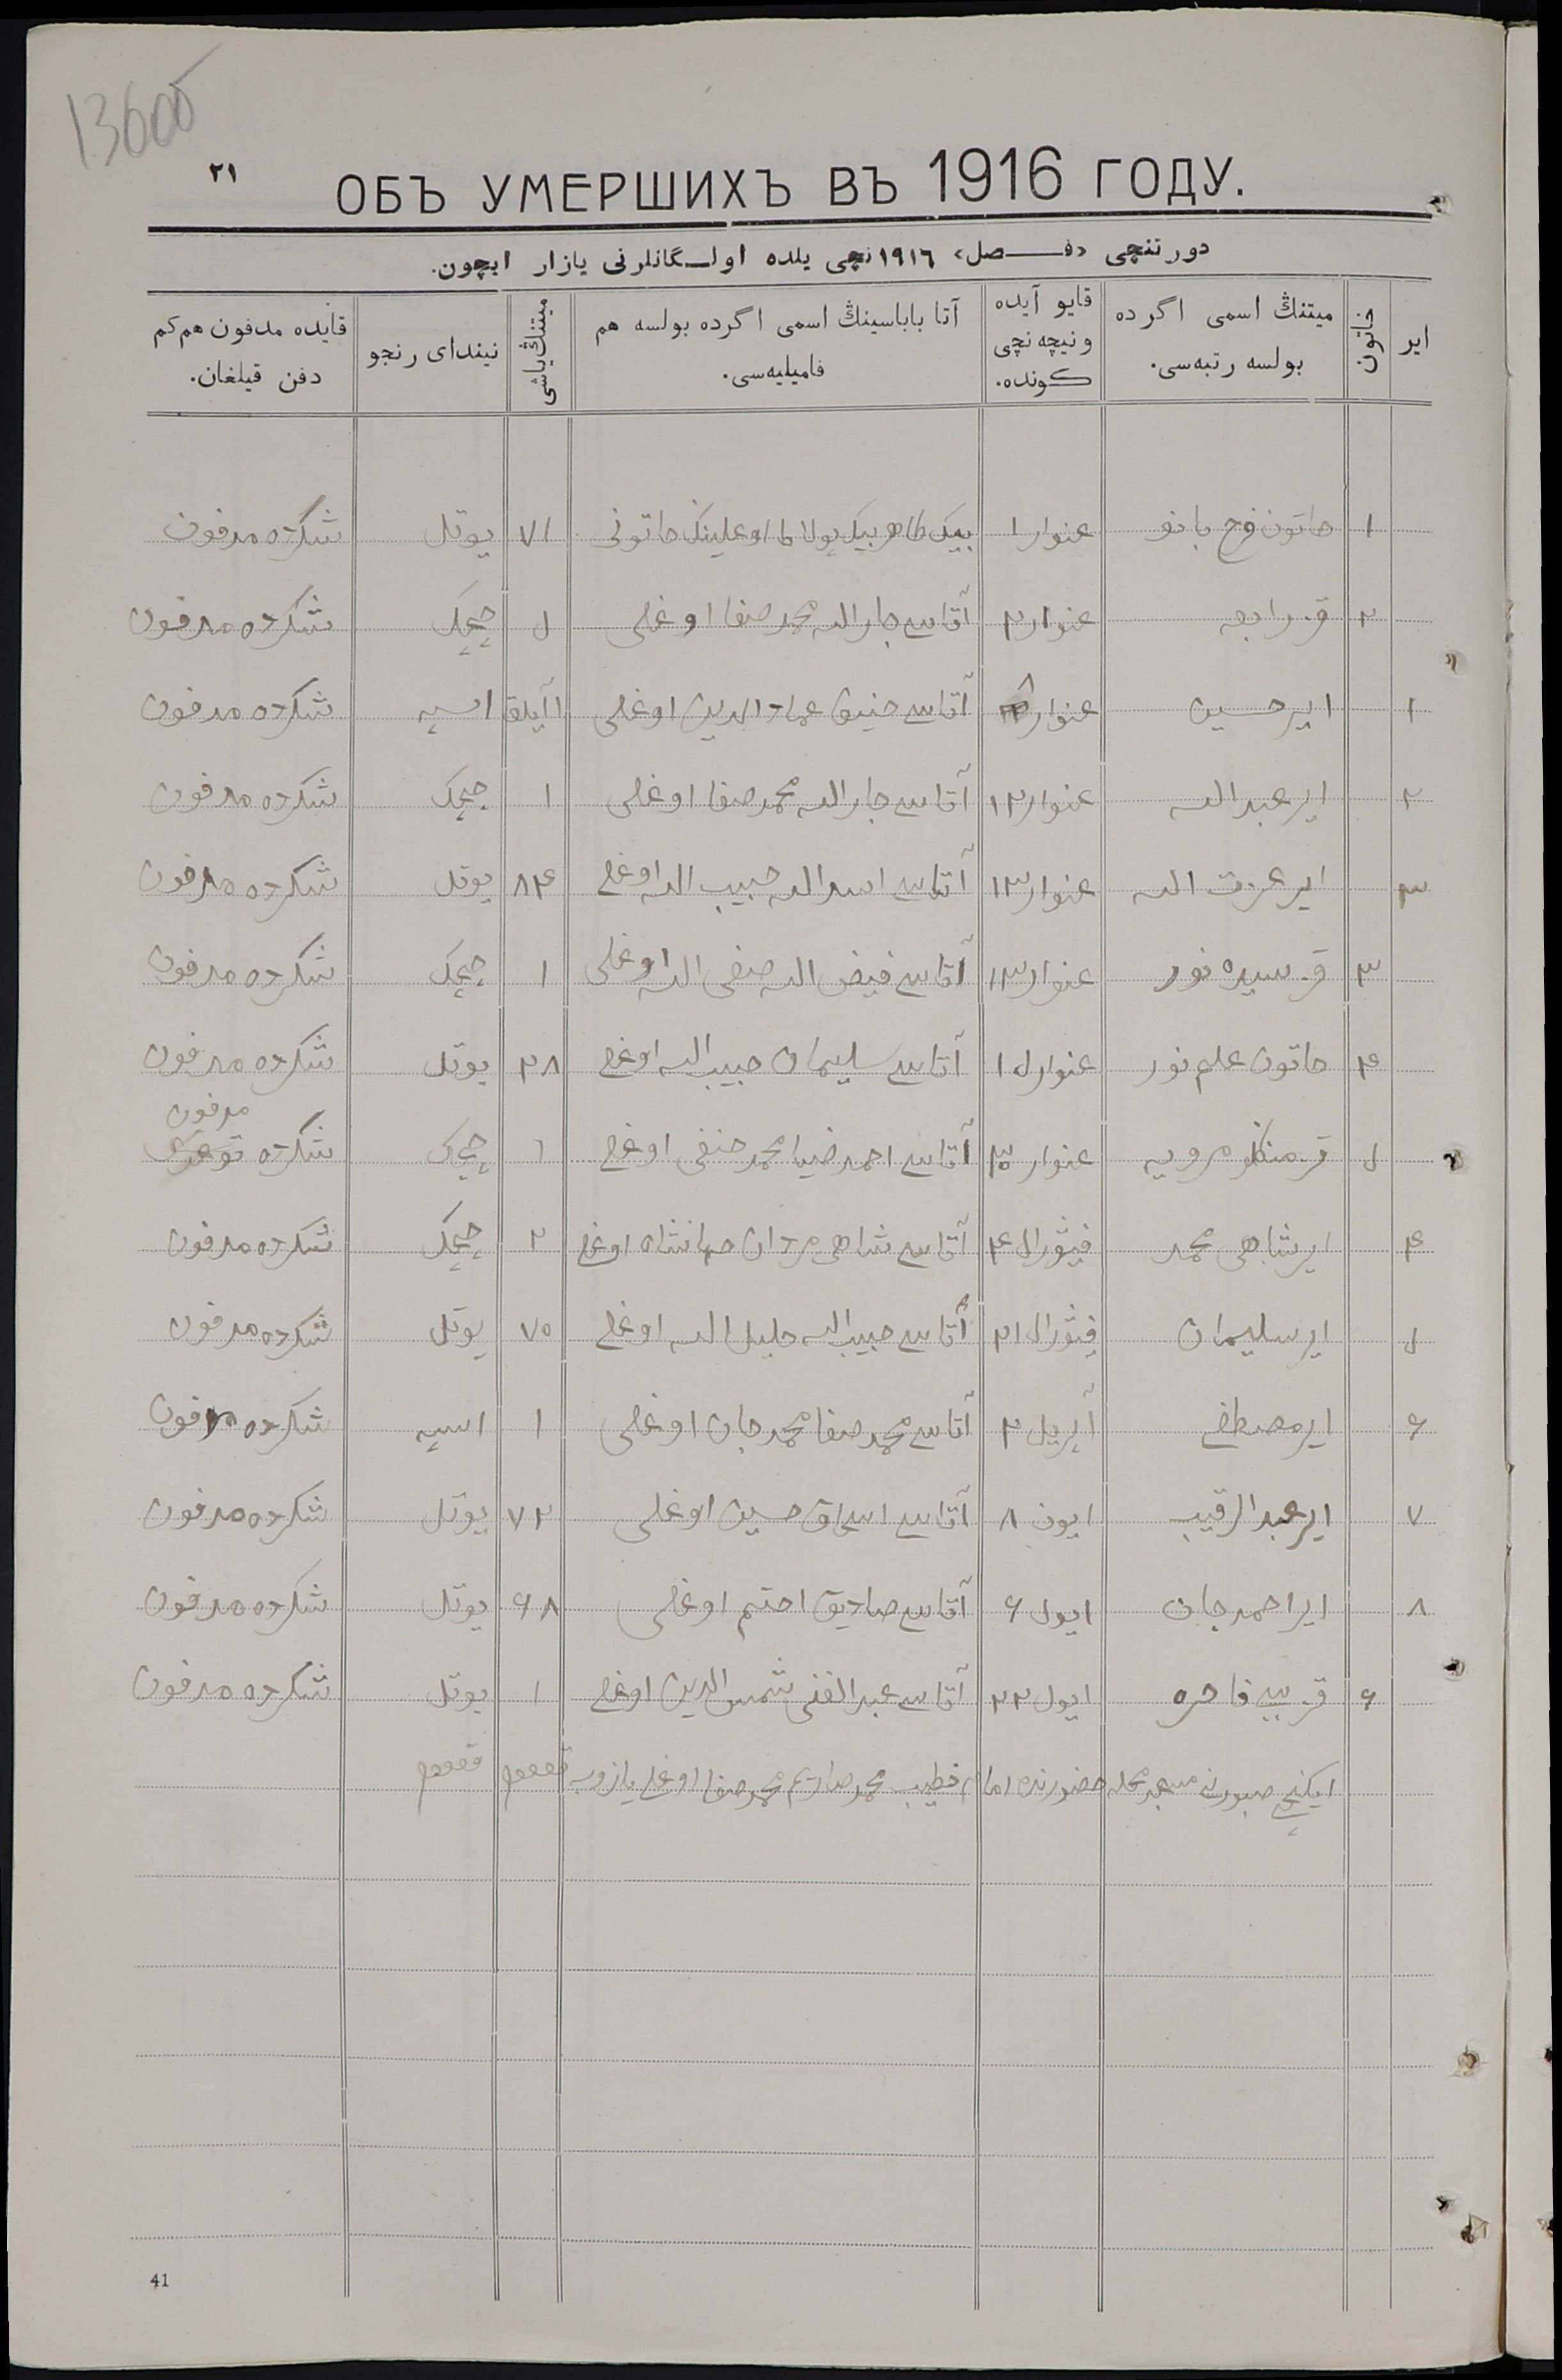 13600
٢١
ОБЪ УМЕРШИХЪ ВЪ 1916 ГОДУ.
دورتنچی «فـــصل» ١٩١٦ نچی يلده اولـگانلرنی يازار ايچون.
اير
خاتون
ميتنڭ اسمی اگرده بولسه رتبه‌سی.
قايو آيده ونيچه نچی كونده.
آتا باباسينڭ اسمی اگرده بولسه هم فاميليه‌سی.
ميتنڭ ياشی
نيندای رنجو
قايده مدفون هم كم دفن قيلغان.
١ خاتون فرح بانو غنوار ١ بيك طاهر بيك بولاط اوغلينك خاتونی ٧١ يوتل شكرده مدفون
٢ ق. رابعه غنوار ٢ آتاسی جارالله محمدصفا اوغلی ۵ چچك شكرده مدفون
١ اير حسين غنوار آتاسی حنيف عمادالدين اوغلی ١ آيلق اسپه شكرده مدفون
٢ اير عبدالله غنوار ١٢ آتاسی جارالله محمدصفا اوغلی ١ چچك شكرده مدفون
٣ اير عزت الله غنوار ١٣ آتاسی اسدالله حبيب الله اوغلی ٨۴ يوتل شكرده مدفون
٣ ق. سيده نور غنوار ١٣ آتاسی فيض الله صفی الله اوغلی ١ چچك شكرده مدفون
۴ خاتون علم نور غنوار ١۵ آتاسی سليمان حبيب الله اوغلی ٢٨ يوتل شكرده مدفون
مدفون
۵ ق. غنوار آتاسی احمدضيا محمدحنفی اوغلی ١ چچك شكرده
۴ اير شاهی محمد فيورال ۴ آتاسی شاهی مردان جهانشاه اوغلی ٢ چچك شكرده مدفون
۵ اير سليمان فيورال ٢١ آتاسی حبيب الله خليل الله اوغلی ٧٥ يوتل شكرده مدفون
۶ اير مصطفی آپريل ٢ آتاسی محمدصفا محمدجان اوغلی ١ اسپه شكرده مدفون
٧ اير عبدالرقيب ايون ٨ آتاسی اسحاق حسين اوغلی ٧٢ يوتل شكرده مدفون
٨ اير احمدجان ايول ۶ آتاسی صاديق احتم اوغلی ۶٨ يوتل شكرده مدفون
۶ ق. بيبی فاخره ايول ٢٢ آتاسی عبدالغنی شمس الدين اوغلی ١ يوتل شكرده مدفون
ايكنچی مسجد محله حضورنده امام خطيب محمدصاديق محمدصفا اوغلی يازوب
41